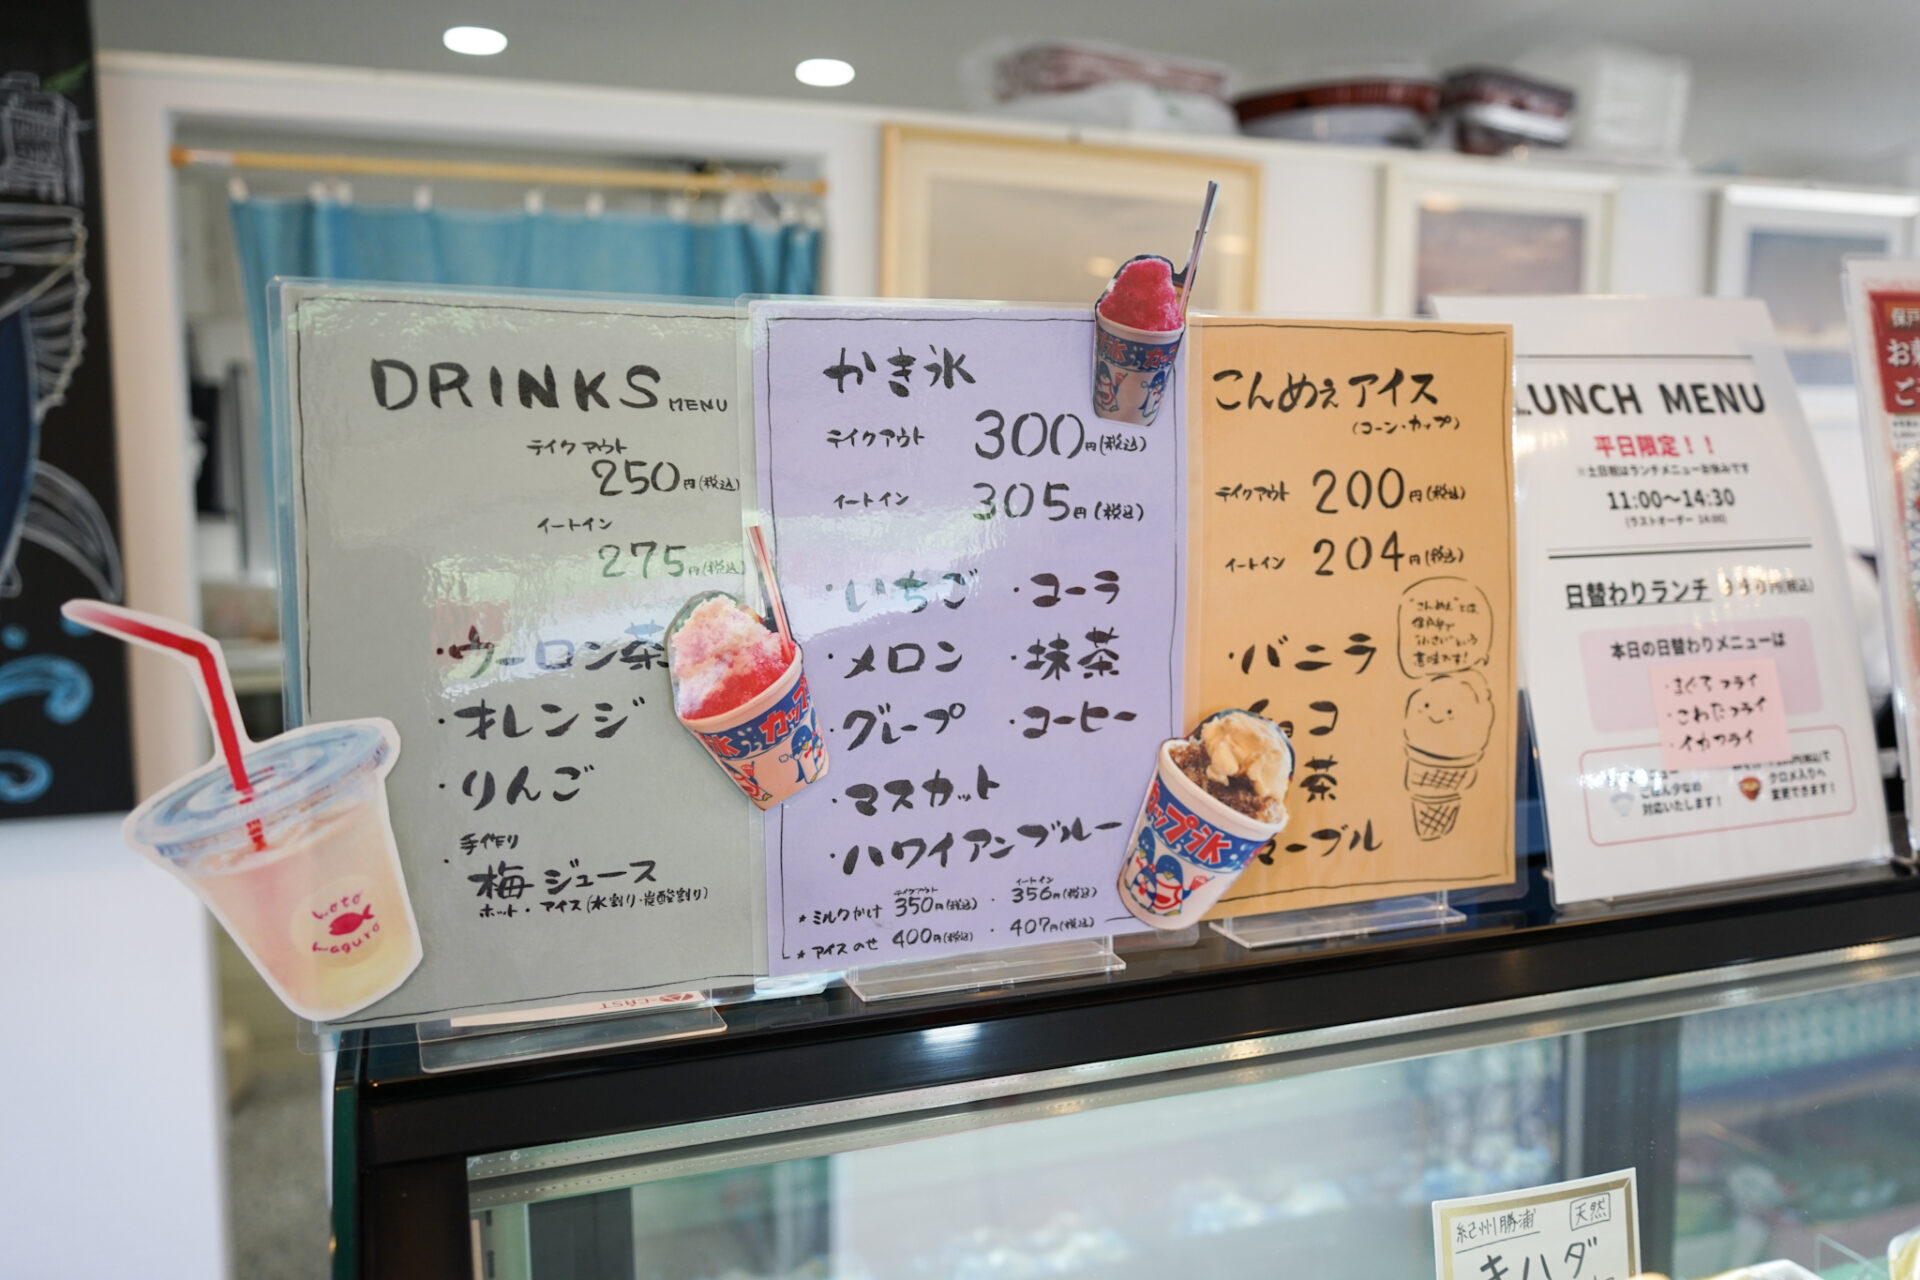 DRINKS MENU
テイクアウト
250円(税込)
イートイン
275円(税込)
・ウーロン茶
・オレンジ
・りんご
・手作り
梅ジュース
ホット・アイス(水割り・炭酸割り)
koto
maguro
かき氷
テイクアウト 300円(税込)
イートイン 305円(税込)
・いちご ・コーラ
・メロン ・抹茶
・グレープ ・コーヒー
・マスカット
・ハワイアンブルー
テイクアウト イートイン
*ミルクがけ 350円(税込) ・ 356円(税込)
*アイスのせ 400円(税込) ・ 407円(税込)
氷カップ
カップ氷
こんめぇアイス
(コーン・カップ)
テイクアウト 200円(税込)
イートイン 204円(税込)
"こんめぇ"とは
保戸弁で
"小さい"という
意味です!
・バニラ
チョコ
茶
マーブル
LUNCH MENU
平日限定！！
※土日祝はランチメニューお休みです
11:00～14:30
(ラストオーダー 14:00)
日替わりランチ 990円(税込)
本日の日替わりメニューは
・まぐろフライ
・こわたフライ
・イカフライ
ごはん少なめ
対応いたします！
クロメ入りへ
変更できます！
保戸
お
ご
紀州勝浦 天然
キハダ